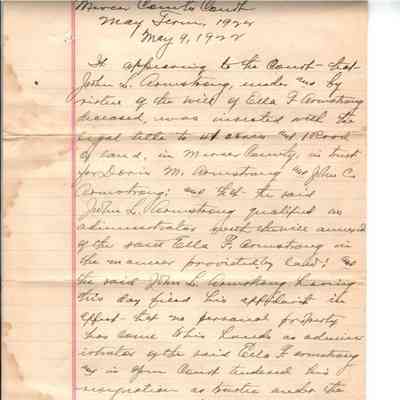 Mercer County Court
May Term, 1922
May 9, 1922
It appearing to the Court that
John L. Armstrong, under and by
virtue of the will of Ella F Armstrong
deceased, was invested with the
legal title to 41 acres and 1 Rood
of land, in Mercer County, in trust
for Doris M. Armstrong and John C.
Armstrong; and that the said
John L. Armstrong qualified as
administrator with the will annexed
of the said Ella F. Armstrong in
the manner provided by law; and
the said John L. Armstrong having
this day filed his affidavit in
effect that no personal property
has come to his hands as admin-
istrator of the said Ella F Armstrong
and in open Court tendered his
resignation as trustee under the